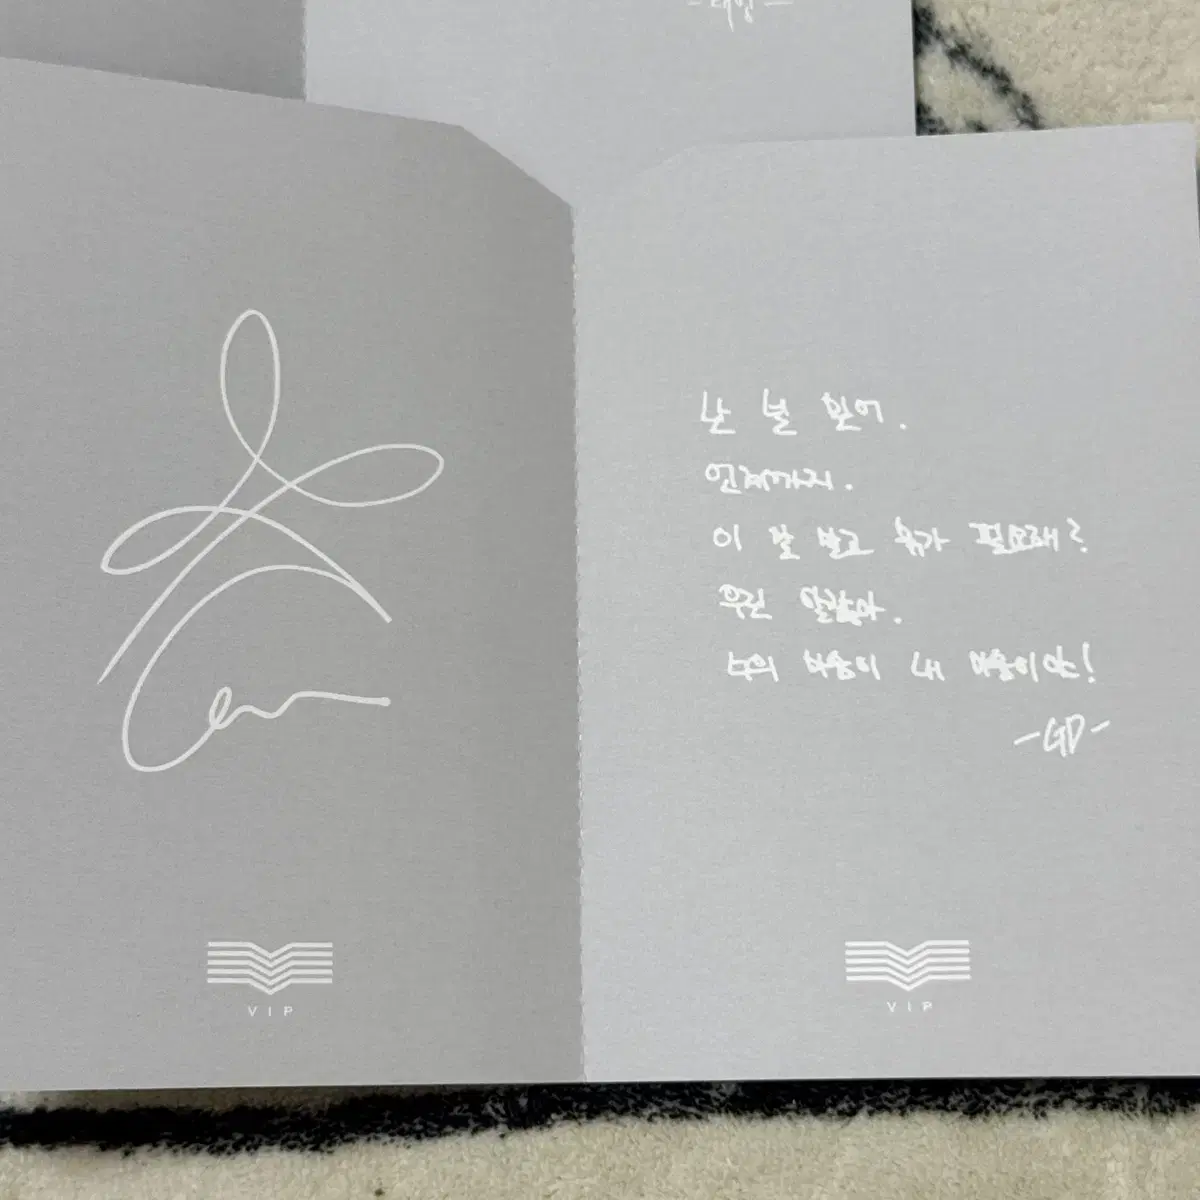 -태양-
난 널 믿어.
언제까지.
이 말 말고 뭐가 필요해?
우린 알잖아.
너의 마음이 내 마음이야!
-GD-
VIP
VIP